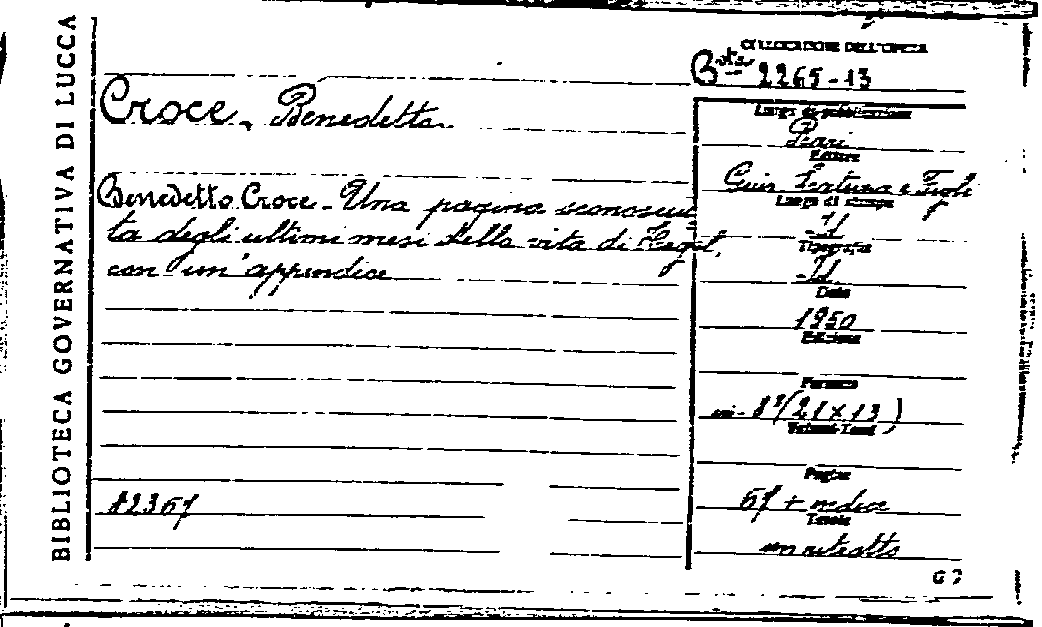 BIBLIOTECA GOVERNATIVA DI LUCCA
COLLOCAZIONE DELL'OPERA
Bta 2265-13
Croce, Benedetto
Benedetto Croce - Una pagina sconosciu
ta degli ultimi mesi della vita di Hegel,
con un'appendice
Luogo di pubblicazione
Editore
Luogo di stampa
Id
Tipografia
Id
Data
1950
Edizione
Formato
in-8°(21x13)
Volumi-Tomi
Pagine
67 + indice
Tavole
un ritratto